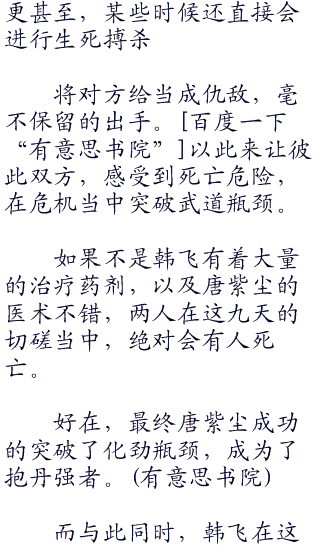 更甚至，某些时候还直接会
进行生死搏杀
将对方给当成仇敌，毫
不保留的出手。[百度一下
“有意思书院”]以此来让彼
此双方，感受到死亡危险，
在危机当中突破武道瓶颈。
如果不是韩飞有着大量
的治疗药剂，以及唐紫尘的
医术不错，两人在这九天的
切磋当中，绝对会有人死
亡。
好在，最终唐紫尘成功
的突破了化劲瓶颈，成为了
抱丹强者。(有意思书院)
而与此同时，韩飞在这